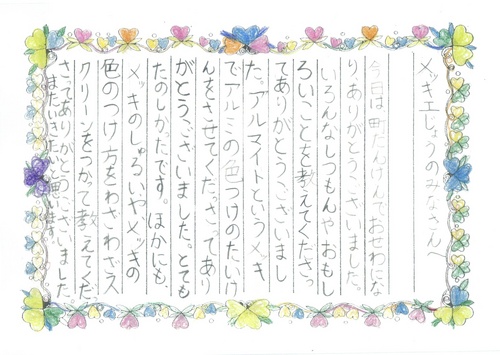 メッキエじょうのみなさんへ
今日は町たんけんでおせわにな
りありがとうございました。
いろんなしつもんや おもし
ろいことを教えてくださっ
てありがとうございまし
た。アルマイトというメッキ
でアルミの色つけのたいけ
んをさせてくださってあり
がとうございました。とても
たのしかったです。ほかにも、
メッキのしゅるいやメッキの
色のつけ方をわざわざス
クリーンをつかって教えてくだ
さってありがとうございました
またいきたいと思います。